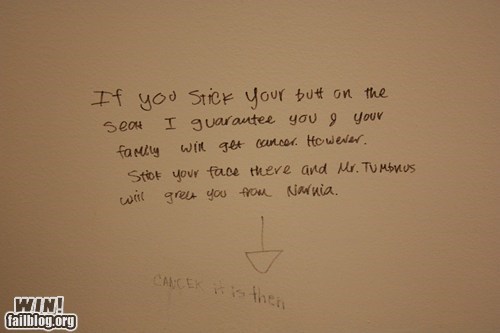 If you stick your butt on the
seat I guarantee you & your
family will get cancer. However.
Stick your face there and Mr. Tumbnus
will greet you from Narnia.
CANCER it is then
WIN!
failblog.org